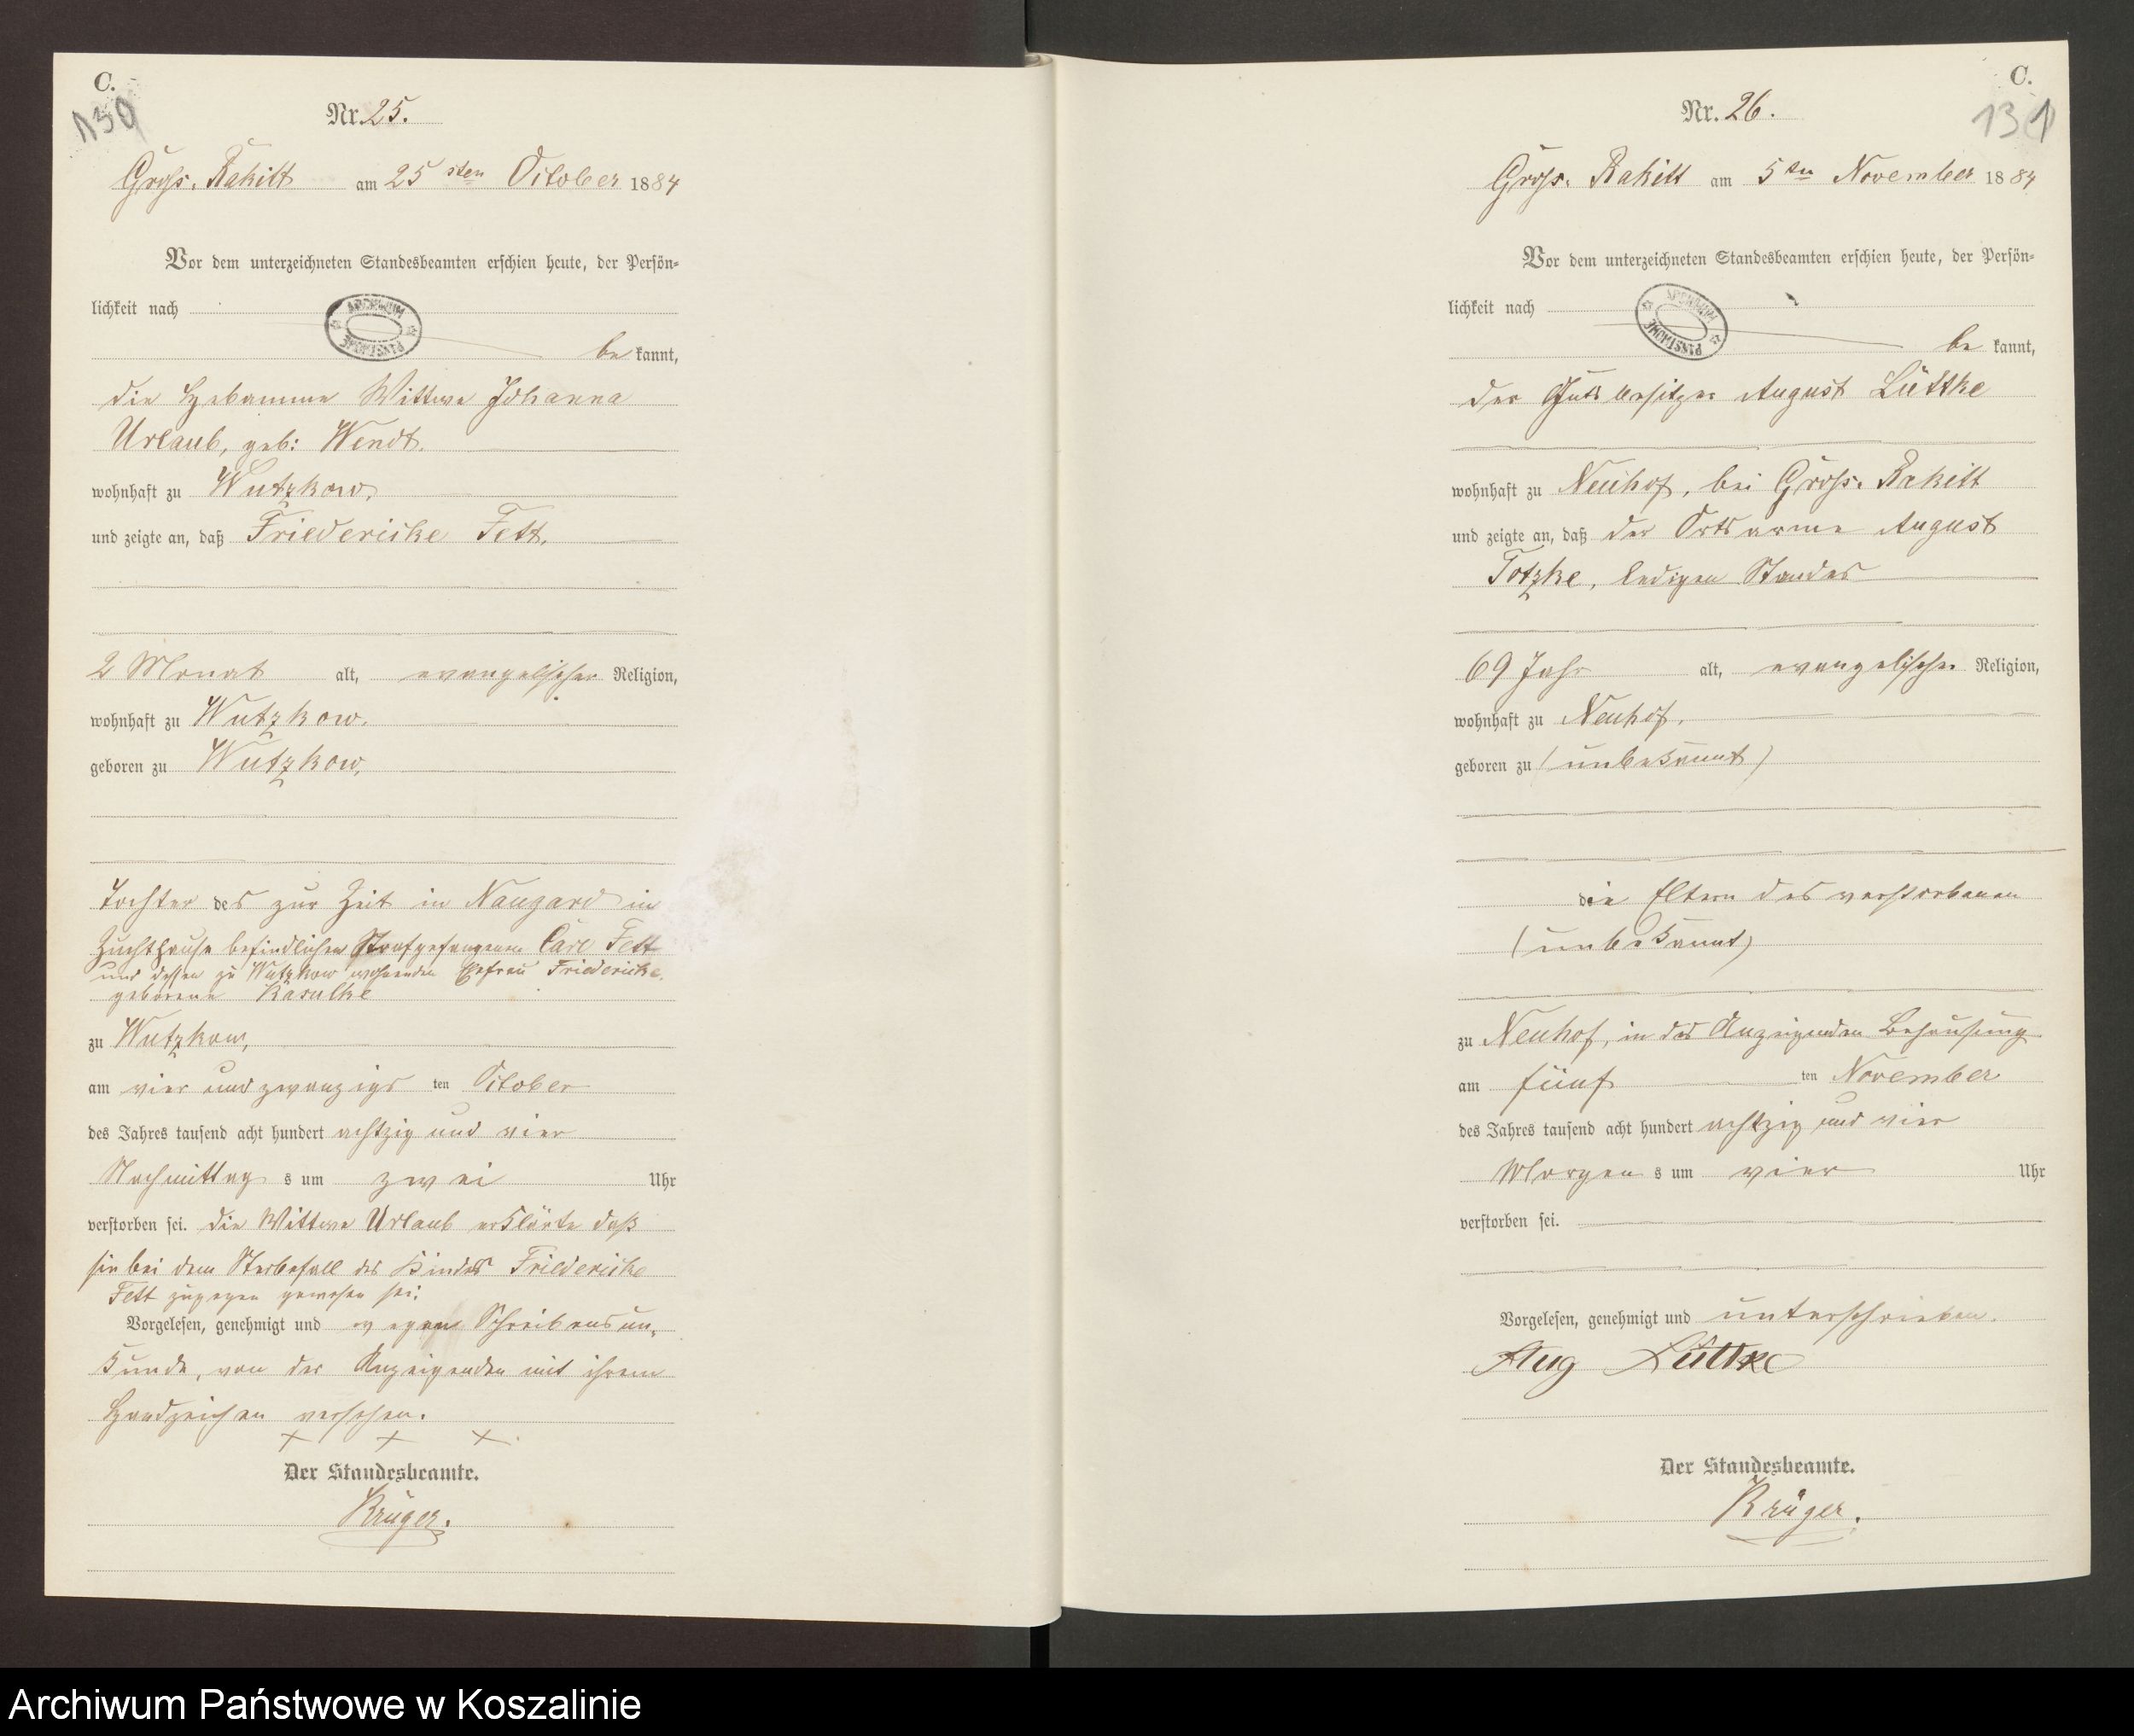 C.
130
Nr. 25.
Gross. Rakitt am 25 sten October 1884
Vor dem unterzeichneten Standesbeamten erschien heute, der Persön-
lichkeit nach
ARCHIWUM PAŃSTWOWE
be kannt,
die Hebamme Wittwe Johanna
Urlaub, geb: Wendt.
wohnhaft zu Wutzkow,
und zeigte an, daß Friedericke Fett,
2 Monat alt, evangelischer Religion,
wohnhaft zu Wutzkow.
geboren zu Wutzkow,
Tochter des zur Zeit in Naugard im
Zuchthause befindlichen Strafgefangenen Carl Fett
und dessen zu Wutzkow wohnenden Ehefrau Friedericke
geborene Kasulke
zu Wutzkow,
am vier und zwanzigs ten October
des Jahres tausend acht hundert achtzig und vier
Nachmittag s um zwei Uhr
verstorben sei. die Wittwe Urlaub erklärte daß
sie bei dem Sterbefall des Kindes Friedericke
Fett zugegen gewesen sei.
Vorgelesen, genehmigt und wegen Schreibensun-
kunde, von der Anzeigenden mit ihrem
Handzeichen versehen.
+ + +
Der Standesbeamte.
Krüger.
C.
131
Nr. 26.
Gross. Rakitt am 5 ten November 1884
Vor dem unterzeichneten Standesbeamten erschien heute, der Persön-
lichkeit nach
ARCHIWUM PAŃSTWOWE
be kannt,
der Gutsbesitzer August Lüttke
wohnhaft zu Neuhof, bei Gross. Rakitt
und zeigte an, daß der Ortsarme August
Totzke, ledigen Standes
69 Jahr alt, evangelischer Religion,
wohnhaft zu Neuhof.
geboren zu (unbekannt)
die Eltern des verstorbenen
(unbekannt)
zu Neuhof, in des Anzeigenden Behausung
am fünf ten November
des Jahres tausend acht hundert achtzig und vier
Morgen s um vier Uhr
verstorben sei.
Vorgelesen, genehmigt und unterschrieben.
Aug Lüttke
Der Standesbeamte.
Krüger.
Archiwum Państwowe w Koszalinie